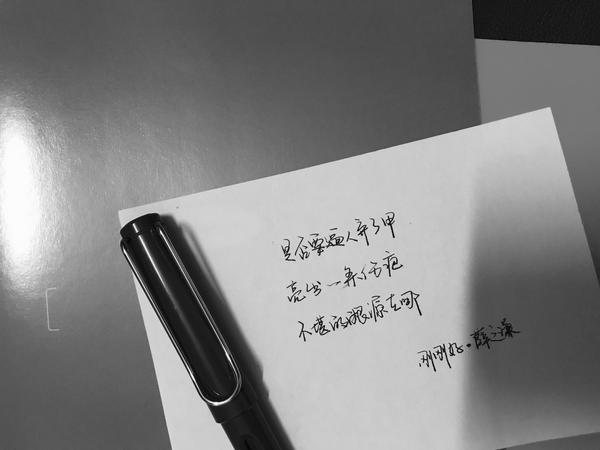 是否要逼人弃了甲
亮出一身伤疤
不堪的根源在哪
刚刚好。薛之谦